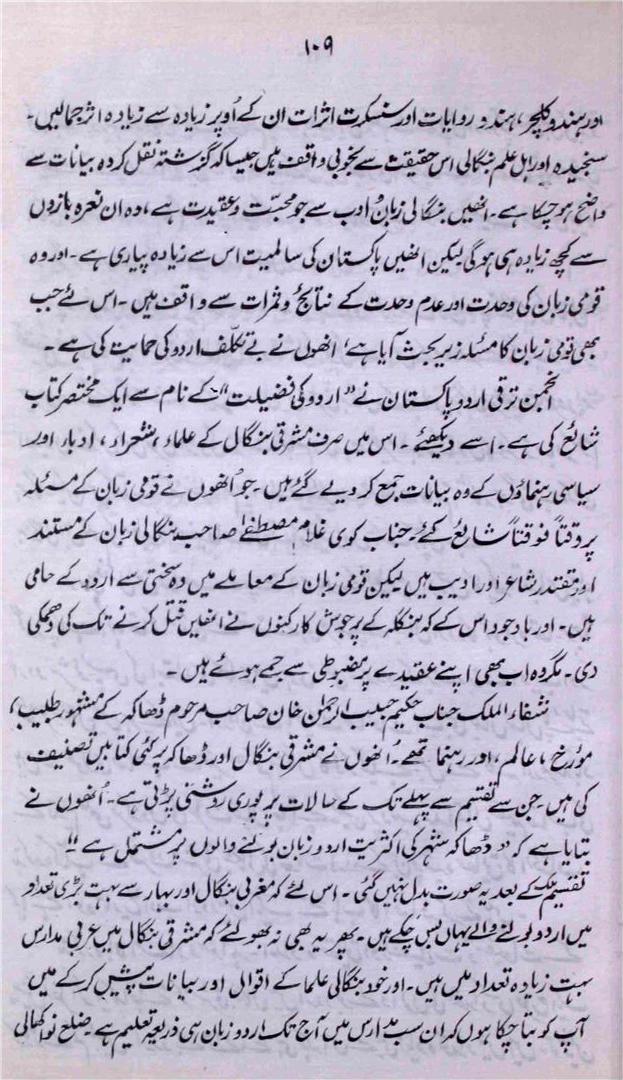 ۱۰۹
اور ہندو کلچر، ہندو روایات اور سنسکرت اثرات ان کے اُوپر زیادہ سے زیادہ اثر جمالیں۔
سنجیدہ اور اہل علم بنگالی اس حقیقت سے بخوبی واقف ہیں جیسا کہ گزشتہ نقل کردہ بیانات سے
واضح ہوچکا ہے۔ انھیں بنگالی زبان و ادب سے جو محبّت و عقیدت ہے، وہ ان نعرہ بازوں
سے کچھ زیادہ ہی ہوگی لیکن انھیں پاکستان کی سالمیت اس سے زیادہ پیاری ہے۔ اور وہ
قومی زبان کی وحدت اور عدم وحدت کے نتائج و ثمرات سے واقف ہیں۔ اس لئے جب
بھی قومی زبان کا مسئلہ زیر بحث آیا ہے، انھوں نے بے تکلّف اردو کی حمایت کی ہے۔
انجمن ترقی اردو پاکستان نے "اردو کی فضیلت" کے نام سے ایک مختصر کتاب
شائع کی ہے۔ اسے دیکھئے۔ اس میں صرف مشرقی بنگال کے علماء، شعراء، ادباء اور
سیاسی رہنماؤں کے وہ بیانات جمع کر دیے گئے ہیں۔ جو اُنھوں نے قومی زبان کے مسئلہ
پر وقتاً فوقتاً شایع کئے۔ جناب کوی غلام مصطفیٰ صاحب بنگالی زبان کے مستند
اور مقتدر شاعر اور ادیب ہیں لیکن قومی زبان کے معاملے میں وہ سختی سے اردو کے حامی
ہیں۔ اور باوجود اس کے کہ بنگلہ کے پرجوش کارکنوں نے انھیں قتل کرنے تک کی دھمکی
دی۔ مگر وہ اب بھی اپنے عقیدے پر مضبوطی سے جمے ہوئے ہیں۔
شفاء الملک جناب حکیم حبیب الرحمٰن خان صاحب مرحوم ڈھاکہ کے مشہور طبیب،
مؤرخ، عالم، اور رہنما تھے۔ اُنھوں نے مشرقی بنگال اور ڈھاکہ پر کئی کتابیں تصنیف
کی ہیں۔ جن سے تقسیم سے پہلے تک کے حالات پر پوری روشنی پڑتی ہے۔ اُنھوں نے
بتایا ہے کہ "ڈھاکہ شہر کی اکثریت اردو زبان بولنے والوں پر مشتمل ہے"
تقسیم ملک کے بعد یہ صورت بدل نہیں گئی۔ اس لئے کہ مغربی بنگال اور بہار سے بہت بڑی تعداد
میں اردو بولنے والے یہاں بس چکے ہیں۔ پھر یہ بھی نہ بھولئے کہ مشرقی بنگال میں عربی مدارس
بہت زیادہ تعداد میں ہیں۔ اور خود بنگالی علما کے اقوال اور بیانات پیش کرکے میں
آپ کو بتا چکا ہوں کہ ان سب مدارس میں آج تک اردو زبان ہی ذریعہ تعلیم ہے۔ ضلع نواکھالی